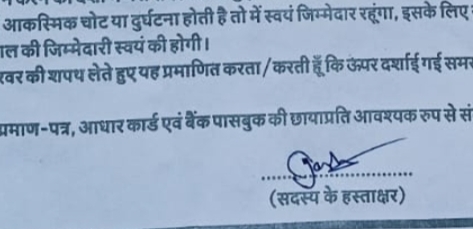 आकस्मिक चोट या दुर्घटना होती है तो में स्वयं जिम्मेदार रहूंगा, इसके लिए
की जिम्मेदारी स्वयं की होगी।
की शपथ लेते हुए यह प्रमाणित करता/करती हूँ कि ऊपर दर्शाई गई
प्रमाण-पत्र, आधार कार्ड एवं बैंक पासबुक की छायाप्रति आवश्यक रुप से
(सदस्य के हस्ताक्षर)